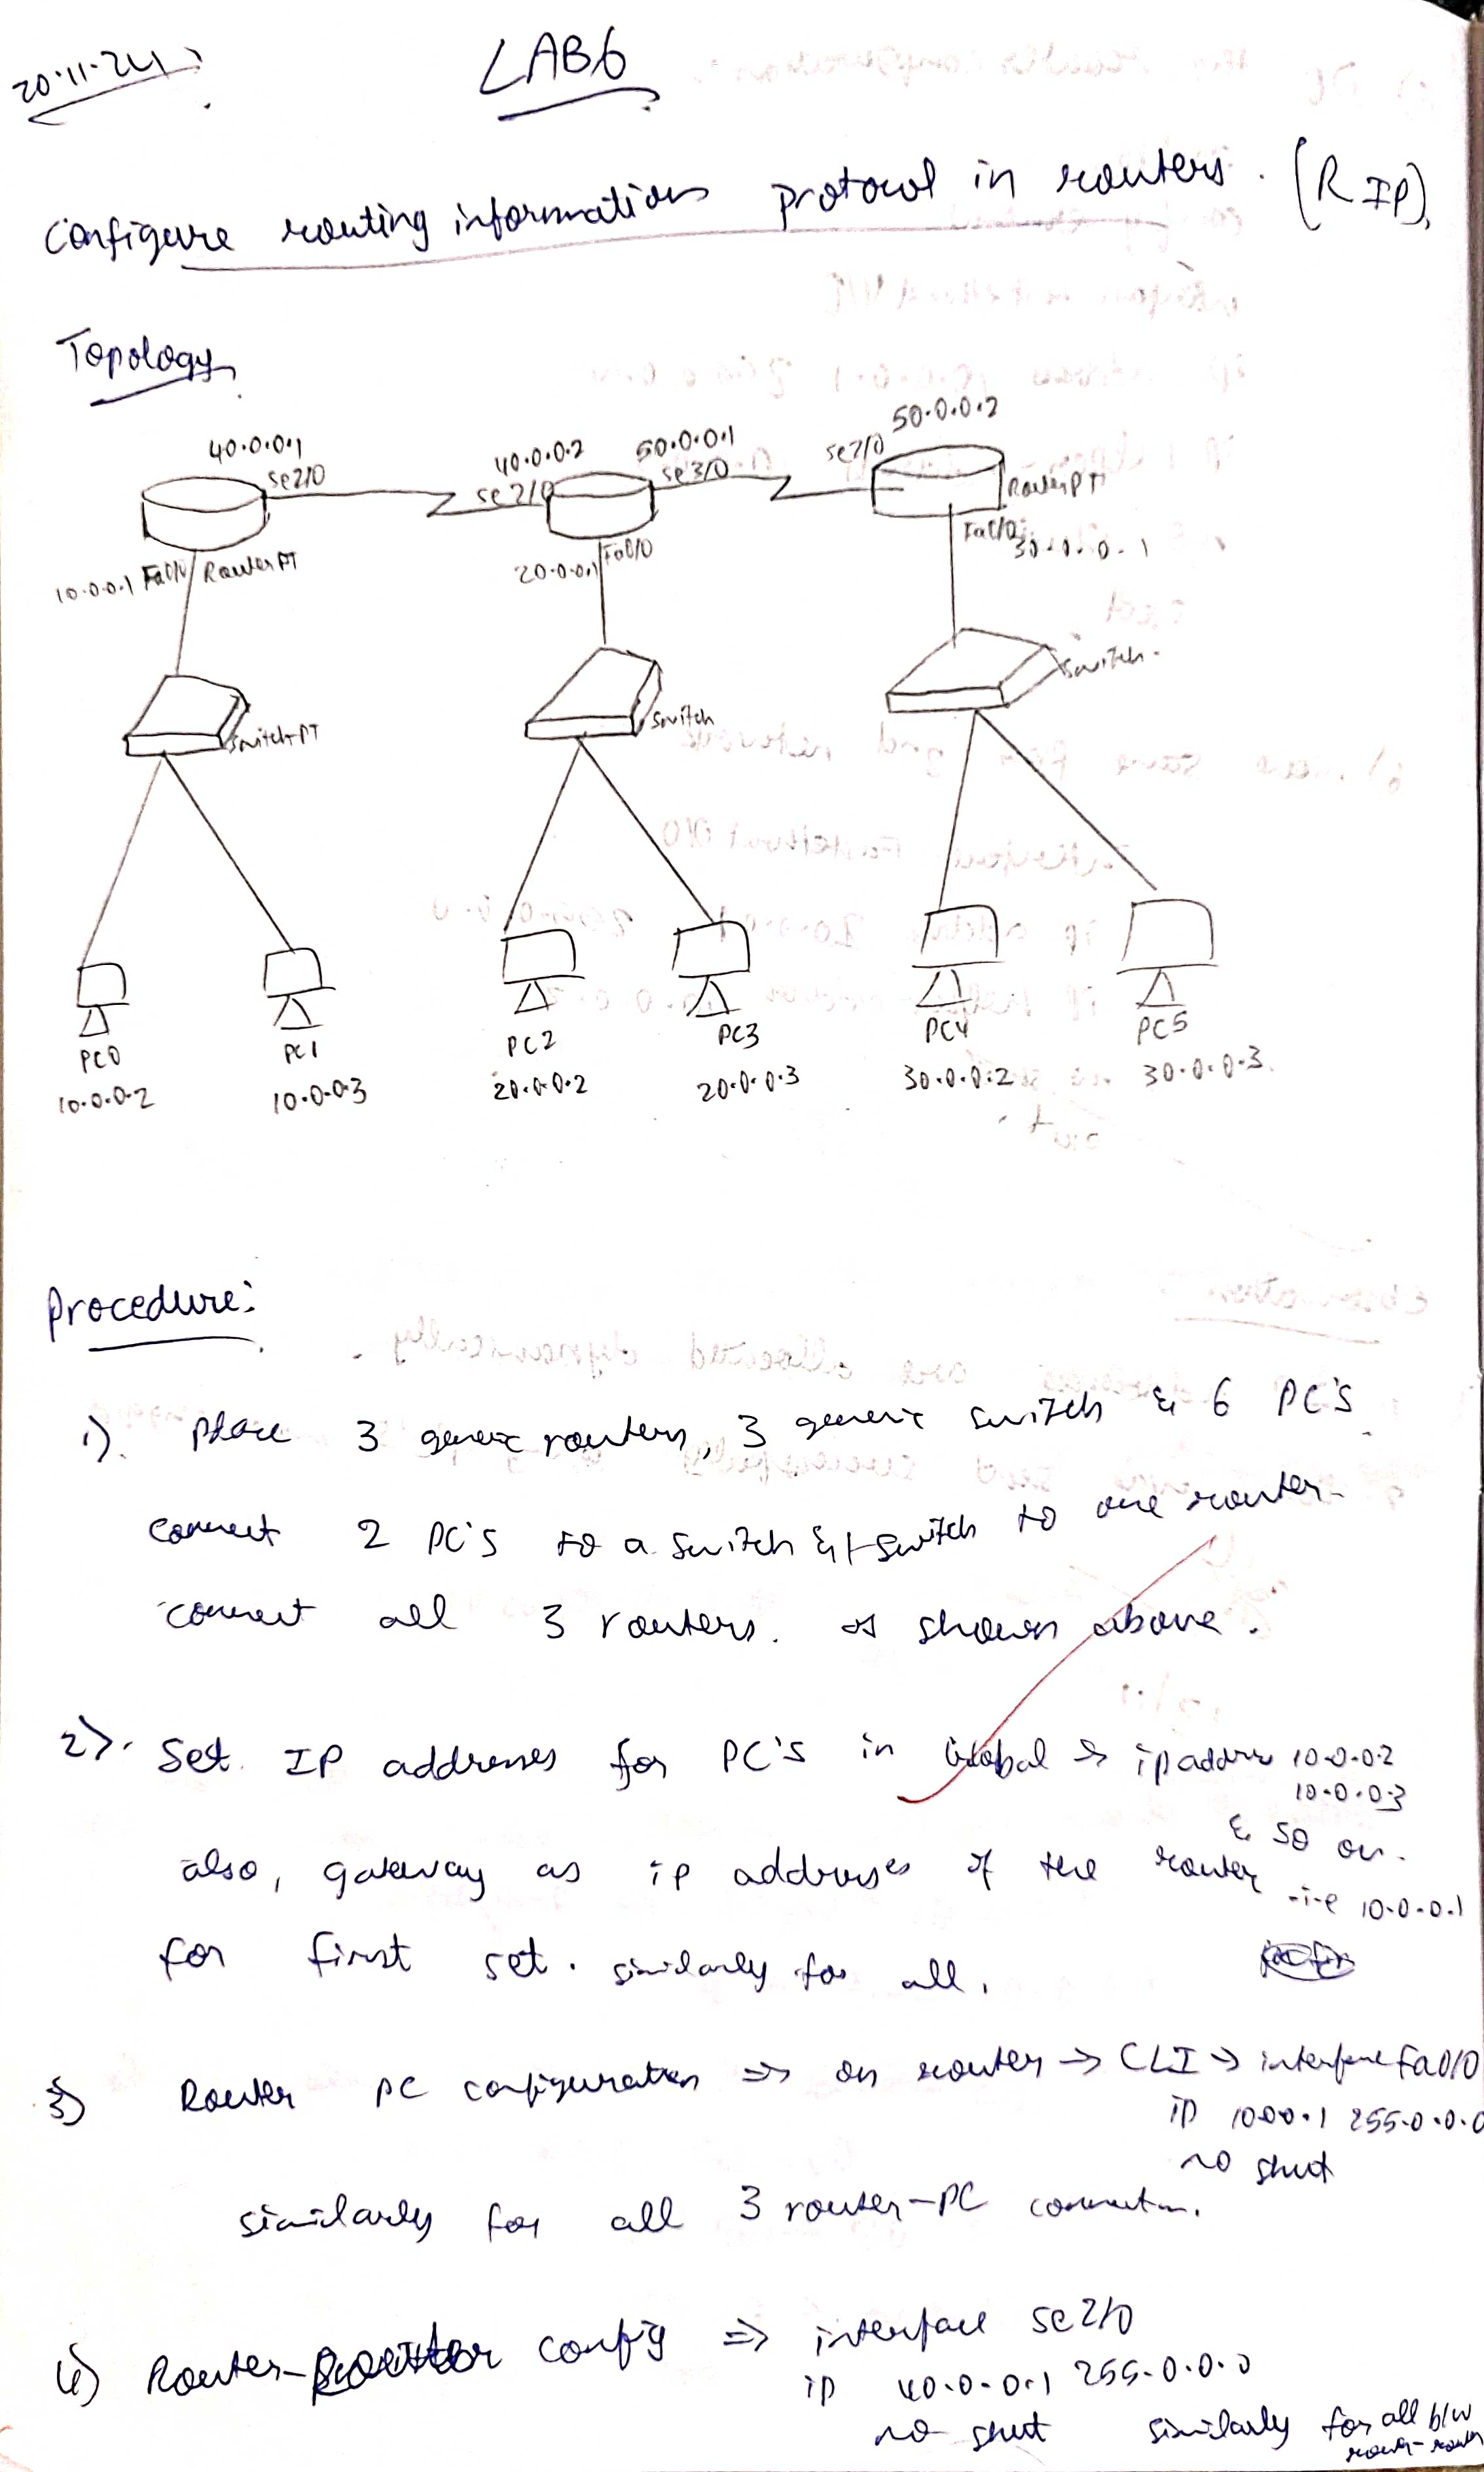 20.11.24
LAB6
Configure routing information protocol in routers. (RIP).
Topology
40.0.0.1
se2/0
40.0.0.2
se2/0
50.0.0.1
se3/0
se2/0
50.0.0.2
RouterPT
10.0.0.1 Fa0/0 RouterPT
20.0.0.1 Fa0/0
Fa0/0 30.0.0.1
Switch-PT
Switch
Switch
PC0
10.0.0.2
PC1
10.0.0.3
PC2
20.0.0.2
PC3
20.0.0.3
PC4
30.0.0.2
PC5
30.0.0.3
Procedure:
1). Place 3 generic routers, 3 generic switch & 6 PC's
connect 2 PC's to a switch & switch to one router.
connect all 3 routers. as shown above.
2). Set IP addresses for PC's in Global → ip address 10.0.0.2
10.0.0.3
& so on.
also, gateway as ip addresses of the router i.e 10.0.0.1
for first set. similarly for all.
3) Router PC configuration ⇒ on router → CLI → interface Fa0/0
ip 10.0.0.1 255.0.0.0
no shut
similarly for all 3 router-PC connection.
4) Router-Router config ⇒ interface se2/0
ip 40.0.0.1 255.0.0.0
no shut similarly for all b/w
router-router